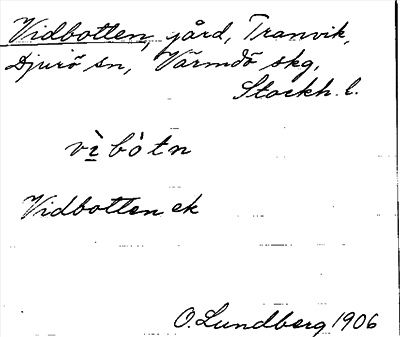 Vidbotten, gård, Tranvik,
Djurö sn, Värmdö skg,
Stockh. l.
vì bò tn
Vidbotten ek
O. Lundberg 1906